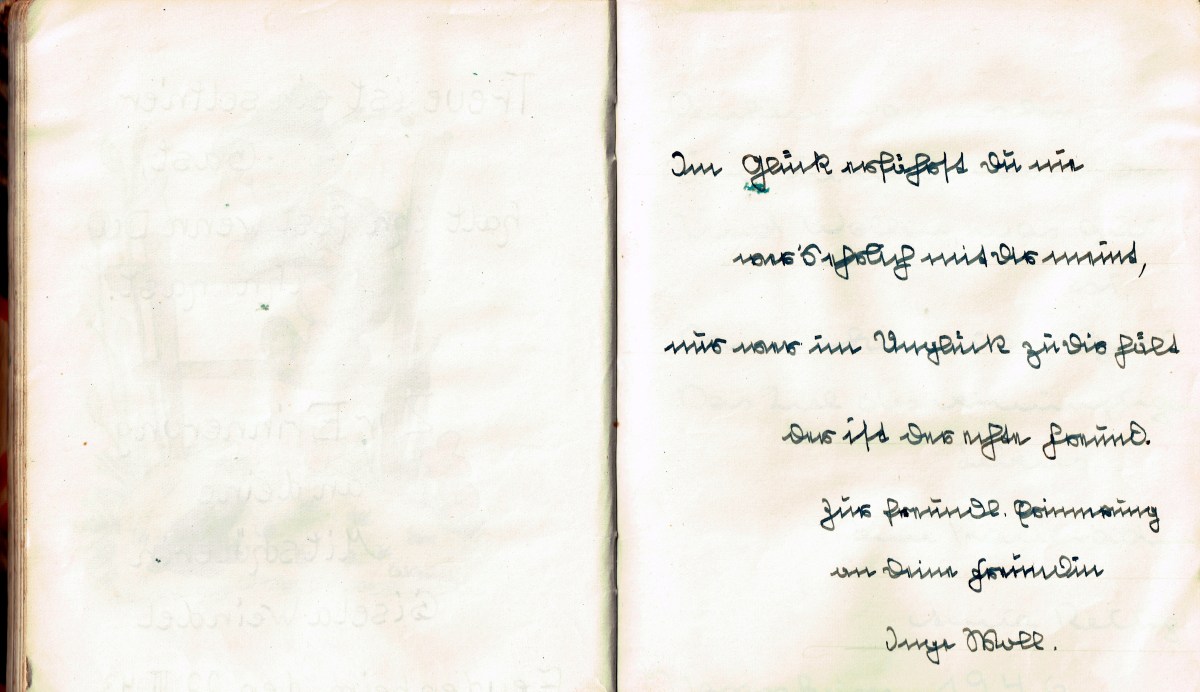 Im Glück erfährst du nie
wer's ehrlich mit dir meint,
nur wer im Unglück zu dir hält
der ist der echte Freund.
Zur freundl. Erinnerung
an deine Freundin
Inge Woll.